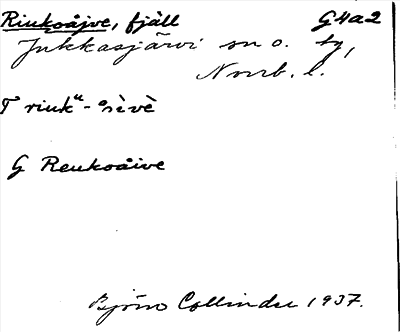 Riukoåjve, fjäll G4a2
Jukkasjärvi sn o. tg,
Norrb. l.
T riuk
G Reukoåive
Björn Collinder 1937.